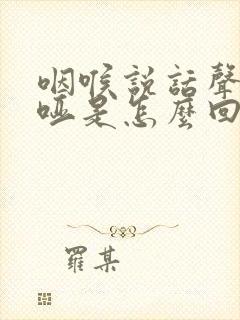 咽喉说話聲
啞是怎麼回
羅某